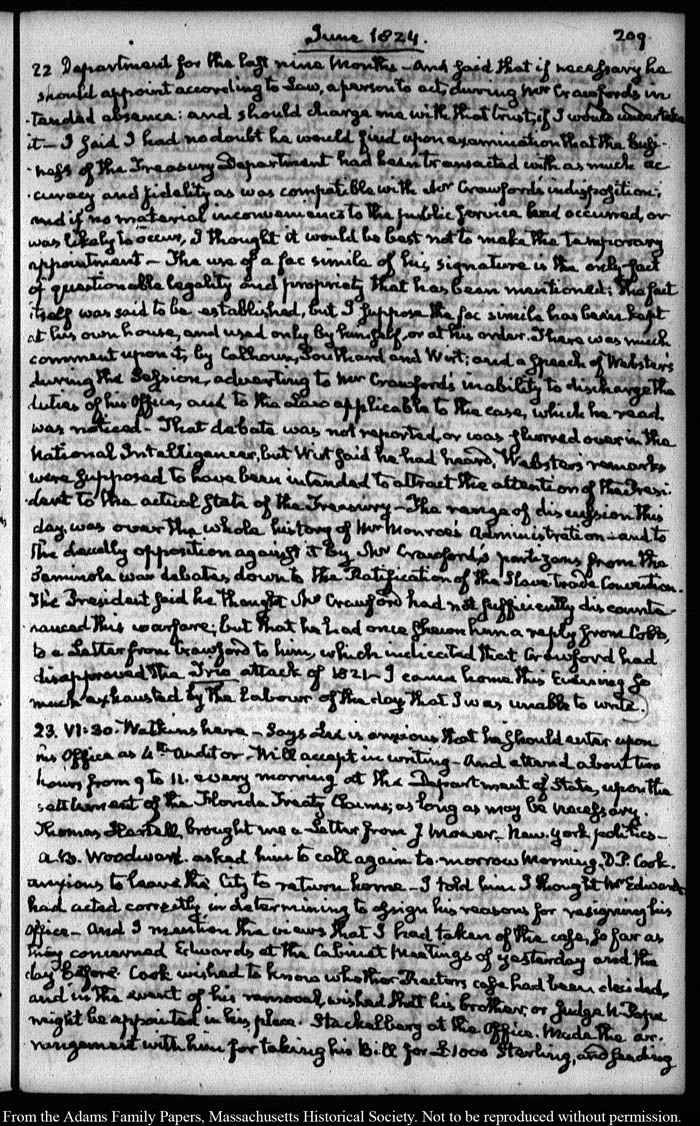 June 1824.
209
22 Department for the last nine Months – and said that if necessary he
should appoint according to Law, a person to act, during Mr Crawford's in
tended absence: and should charge me with that trust, if I would undertake
it – I said I had no doubt he would find upon examination that the busi-
ness of the Treasury Department had been transacted with as much ac
curacy and fidelity as was compatible with Mr Crawford's indisposition;
and if no material inconvenience to the public service had occurred, or
was likely to occur, I thought it would be best not to make the temporary
appointment – The use of a fac simile of his signature is the only fact
of questionable legality and propriety that has been mentioned; the fact
itself was said to be established, but I suppose the fac simile has been kept
at his own house, and used only by himself, or at his order. There was much
comment upon it, by Calhoun, Southard and Wirt; and a speech of Webster's
during the Session, adverting to Mr Crawford's inability to discharge the
duties of his Office, and to the Law applicable to the case, which he read
was noticed – That debate was not reported, or was slurred over in the
National Intelligencer, but Wirt said he had heard, Webster's remarks
were supposed to have been intended to attract the attention of the Presi
dent to the actual state of the Treasury – The range of discussion this
day, was over the whole history of Mr Monroe's Administration – and to
the deadly opposition against it by Mr Crawford's partizans from the
Seminole war debates, down to the Ratification of the Slave trade Convention.
The President said he thought Mr Crawford had not sufficiently discounte
nanced this warfare; but that he had once shewn him a reply from Cobb,
to a Letter from Crawford to him, which indicated that Crawford had
disapproved the Trio attack of 1821 – I came home this Evening so
much exhausted by the labour of the day that I was unable to write.
23. VI:30. Watkins here – Says Lee is anxious that he should enter upon
his Office as 4th Auditor – Will accept in writing – And attend about two
hours from 9 to 11. every morning at the Department of State, upon the
settlement of the Florida Treaty Claims, as long as may be necessary.
Thomas brought me a Letter from J Mower – New-York politics –
A. B. Woodward. asked him to call again to-morrow Morning. D. P. Cook.
anxious to leave the City to return home – I told him I thought Mr Edwards
had acted correctly in determining to assign his reasons for resigning his
Office – And I mention the views that I had taken of the case, so far as
they concerned Edwards at the Cabinet Meetings of yesterday and the
day before. Cook wished to know whether case had been decided,
and in the event of his removal, wished that his brother, or Judge N. Pope
might be appointed in his place. Stackelberg at the Office. Made the ar-
rangement with him for taking his Bill for £1000 Sterling, and sending
From the Adams Family Papers, Massachusetts Historical Society. Not to be reproduced without permission.